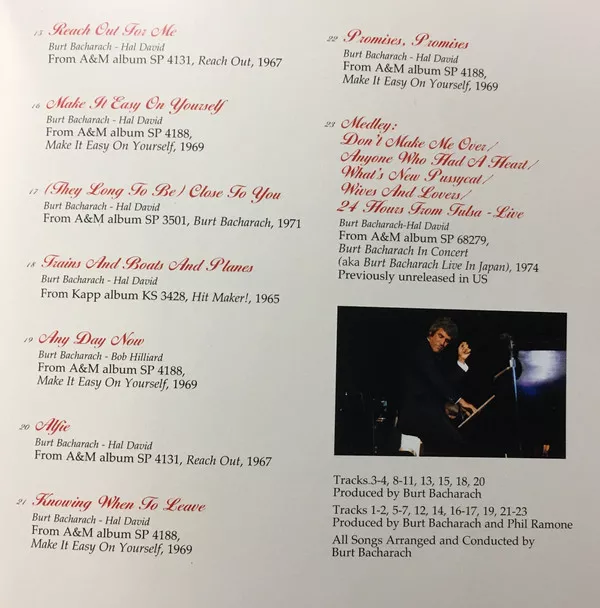 15 Reach Out For Me
Burt Bacharach - Hal David
From A&M album SP 4131, Reach Out, 1967
16 Make It Easy On Yourself
Burt Bacharach - Hal David
From A&M album SP 4188,
Make It Easy On Yourself, 1969
17 (They Long To Be) Close To You
Burt Bacharach - Hal David
From A&M album SP 3501, Burt Bacharach, 1971
18 Trains And Boats And Planes
Burt Bacharach - Hal David
From Kapp album KS 3428, Hit Maker!, 1965
19 Any Day Now
Burt Bacharach - Bob Hilliard
From A&M album SP 4188,
Make It Easy On Yourself, 1969
20 Alfie
Burt Bacharach - Hal David
From A&M album SP 4131, Reach Out, 1967
21 Knowing When To Leave
Burt Bacharach - Hal David
From A&M album SP 4188,
Make It Easy On Yourself, 1969
22 Promises, Promises
Burt Bacharach - Hal David
From A&M album SP 4188,
Make It Easy On Yourself, 1969
23 Medley:
Don't Make Me Over/
Anyone Who Had A Heart/
What's New Pussycat/
Wives And Lovers/
24 Hours From Tulsa - Live
Burt Bacharach-Hal David
From A&M album SP 68279,
Burt Bacharach In Concert
(aka Burt Bacharach Live In Japan), 1974
Previously unreleased in US
Tracks.3-4, 8-11, 13, 15, 18, 20
Produced by Burt Bacharach
Tracks 1-2, 5-7, 12, 14, 16-17, 19, 21-23
Produced by Burt Bacharach and Phil Ramone
All Songs Arranged and Conducted by
Burt Bacharach